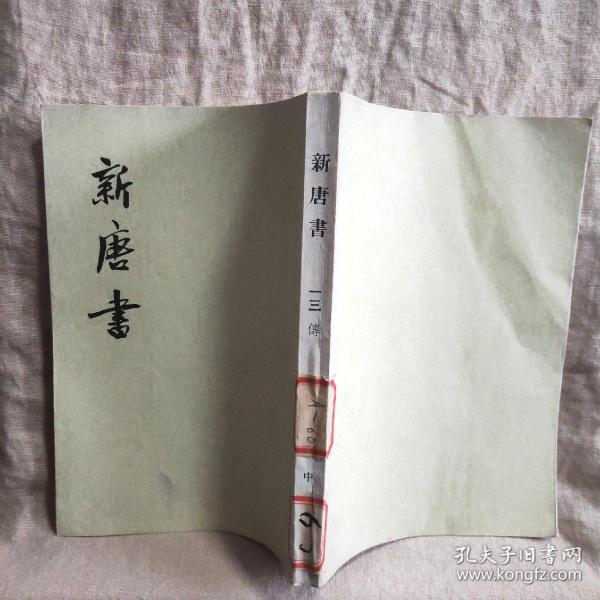 新唐書
新唐書
一三
傳
中
孔夫子旧书网
www.kongfz.com